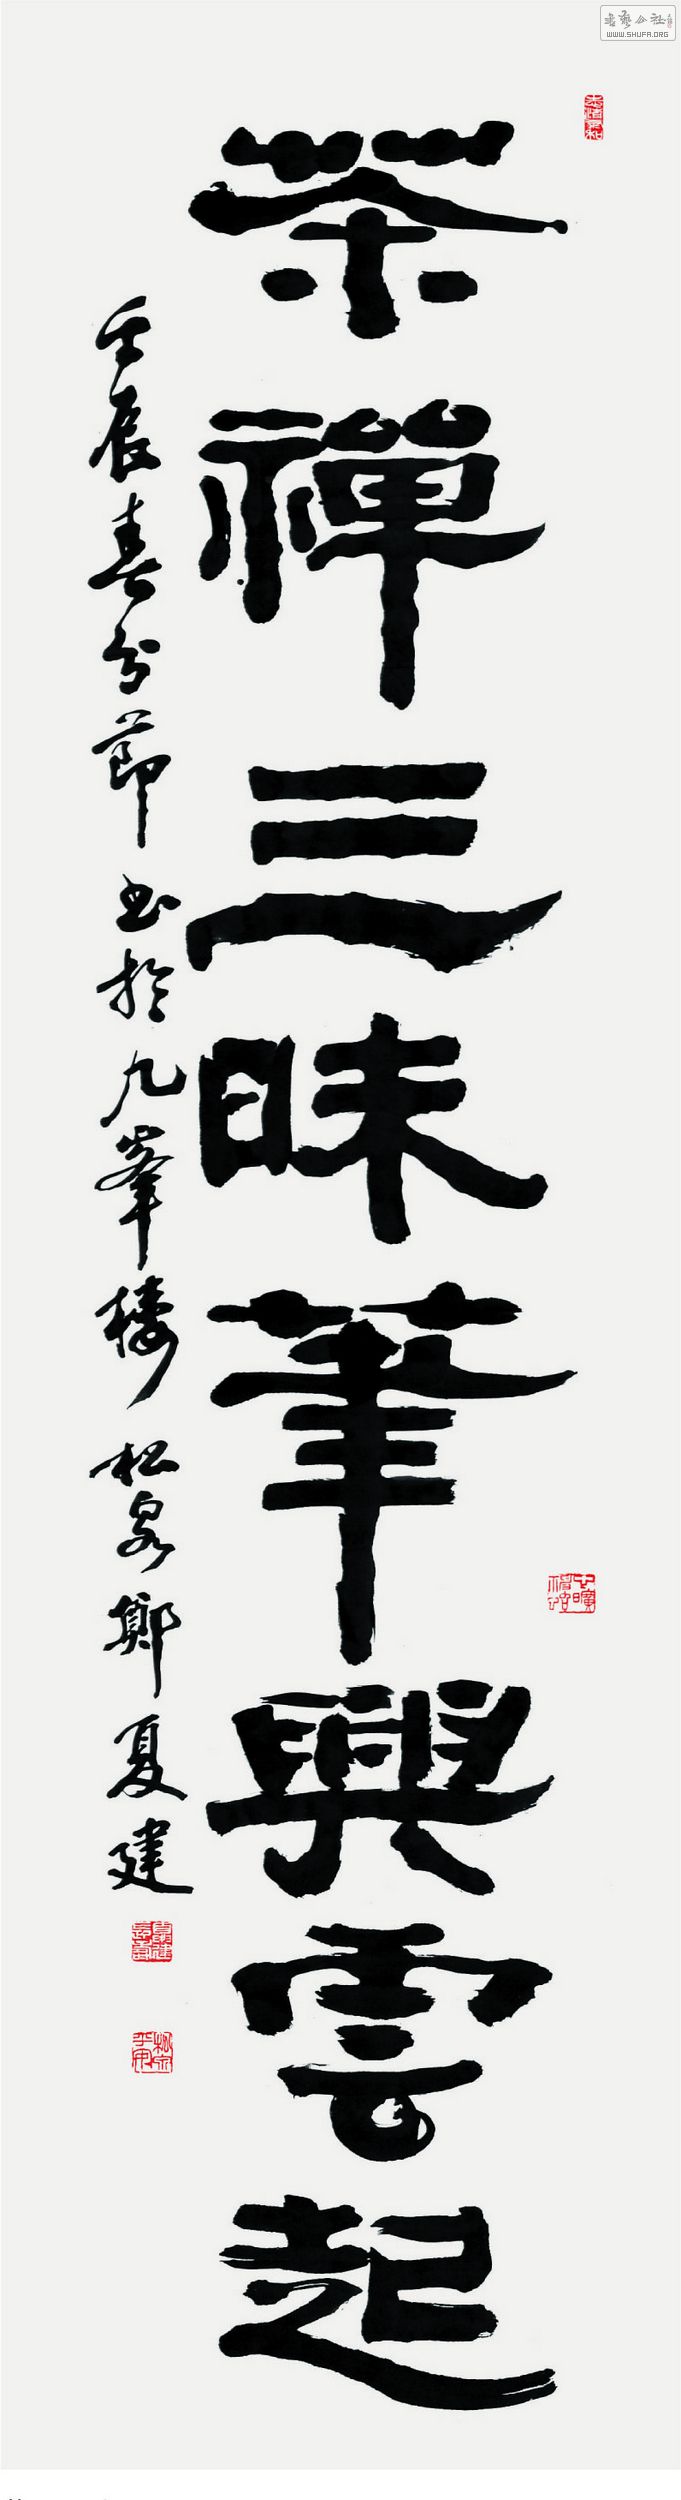 書藝公社
WWW.SHUFA.ORG
茶禪三昧筆興雲起
壬辰春分節書於九峯樓松泉鄭夏建